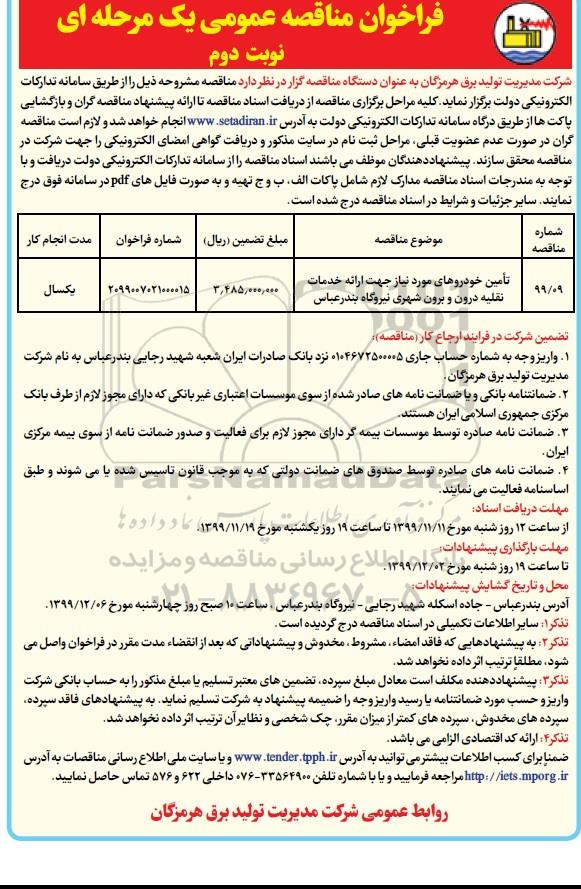 فراخوان مناقصه عمومی یک مرحله ای
نوبت دوم
شرکت مدیریت تولید برق هرمزگان به عنوان دستگاه مناقصه گزار در نظر دارد مناقصه مشروحه ذیل را از طریق سامانه تدارکات
الکترونیکی دولت برگزار نماید. کلیه مراحل برگزاری مناقصه از دریافت اسناد مناقصه تا ارائه پیشنهاد مناقصه گران و بازگشایی
پاکت ها از طریق درگاه سامانه تدارکات الکترونیکی دولت به آدرس www.setadiran.ir انجام خواهد شد و لازم است مناقصه
گران در صورت عدم عضویت قبلی، مراحل ثبت نام در سایت مذکور و دریافت گواهی امضای الکترونیکی را جهت شرکت در
مناقصه محقق سازند. پیشنهاددهندگان موظف می باشند اسناد مناقصه را از سامانه تدارکات الکترونیکی دولت دریافت و با
توجه به مندرجات اسناد مناقصه مدارک لازم شامل پاکات الف، ب و ج تهیه و به صورت فایل های pdf در سامانه فوق درج
نمایند. سایر جزئیات و شرایط در اسناد مناقصه درج شده است.
شماره مناقصه | موضوع مناقصه | مبلغ تضمین (ریال) | شماره فراخوان | مدت انجام کار
۹۹/۰۹ | تأمین خودروهای مورد نیاز جهت ارائه خدمات نقلیه درون و برون شهری نیروگاه بندرعباس | ۳,۴۸۵,۰۰۰,۰۰۰ | ۲۰۹۹۰۰۷۰۲۱۰۰۰۰۱۵ | یکسال
تضمین شرکت در فرایند ارجاع کار (مناقصه):
۱. واریز وجه به شماره حساب جاری ۰۱۰۴۶۷۲۵۰۰۰۰۵ نزد بانک صادرات ایران شعبه شهید رجایی بندرعباس به نام شرکت
مدیریت تولید برق هرمزگان.
۲. ضمانتنامه بانکی و یا ضمانت نامه های صادر شده از سوی موسسات اعتباری غیر بانکی که دارای مجوز لازم از طرف بانک
مرکزی جمهوری اسلامی ایران هستند.
۳. ضمانت نامه صادره توسط موسسات بیمه گر دارای مجوز لازم برای فعالیت و صدور ضمانت نامه از سوی بیمه مرکزی
ایران.
۴. ضمانت نامه های صادره توسط صندوق های ضمانت دولتی که به موجب قانون تاسیس شده یا می شوند و طبق
اساسنامه فعالیت می نمایند.
مهلت دریافت اسناد:
از ساعت ۱۲ روز شنبه مورخ ۱۳۹۹/۱۱/۱۱ تا ساعت ۱۹ روز یکشنبه مورخ ۱۳۹۹/۱۱/۱۹.
مهلت بارگذاری پیشنهادات:
تا ساعت ۱۹ روز شنبه مورخ ۱۳۹۹/۱۲/۰۲.
محل و تاریخ گشایش پیشنهادات:
آدرس بندرعباس - جاده اسکله شهید رجایی - نیروگاه بندرعباس ، ساعت ۱۰ صبح روز چهارشنبه مورخ ۱۳۹۹/۱۲/۰۶.
تذکر۱: سایر اطلاعات تکمیلی در اسناد مناقصه درج گردیده است.
تذکر۲: به پیشنهادهایی که فاقد امضاء، مشروط ، مخدوش و پیشنهاداتی که بعد از انقضاء مدت مقرر در فراخوان واصل می
شود، مطلقاً ترتیب اثر داده نخواهد شد.
تذکر۳: پیشنهاددهنده مکلف است معادل مبلغ سپرده، تضمین های معتبر تسلیم یا مبلغ مذکور را به حساب بانکی شرکت
واریز و حسب مورد ضمانتنامه یا رسید واریز وجه را ضمیمه پیشنهاد به شرکت تسلیم نماید. به پیشنهادهای فاقد سپرده،
سپرده های مخدوش، سپرده های کمتر از میزان مقرر، چک شخصی و نظایر آن ترتیب اثر داده نخواهد شد.
تذکر۴: ارائه کد اقتصادی الزامی می باشد.
ضمنا برای کسب اطلاعات بیشتر می توانید به آدرس www.tender.tpph.ir و یا سایت ملی اطلاع رسانی مناقصات به آدرس
http://iets.mporg.ir مراجعه فرمایید و یا با شماره تلفن ۳۳۵۶۴۹۰۰-۰۷۶ داخلی ۶۲۲ و ۵۷۶ تماس حاصل نمایید.
روابط عمومی شرکت مدیریت تولید برق هرمزگان
ParsNamadData
پایگاه اطلاع رسانی مناقصه و مزایده
۰۲۱-۸۸۳۴۹۶۷۰-۵